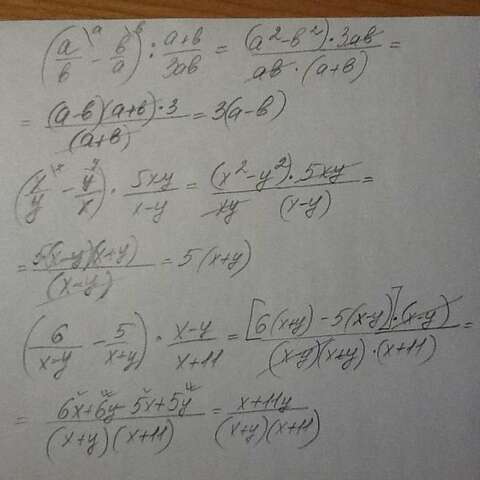 (a/b \a - b/a \b) : (a+b)/(3ab) = ((a²-b²)·3ab)/(ab·(a+b)) =
= ((a-b)(a+b)·3)/(a+b) = 3(a-b)
(x/y \x - y/x \y) · (5xy)/(x-y) = ((x²-y²)·5xy)/(xy (x-y)) =
= (5(x-y)(x+y))/(x-y) = 5(x+y)
(6/(x-y) - 5/(x+y)) · (x-y)/(x+11) = ([6(x+y) - 5(x-y)]·(x-y))/((x-y)(x+y)·(x+11)) =
= (6x+6y 5x+5y)/((x+y)(x+11)) = (x+11y)/((x+y)(x+11))